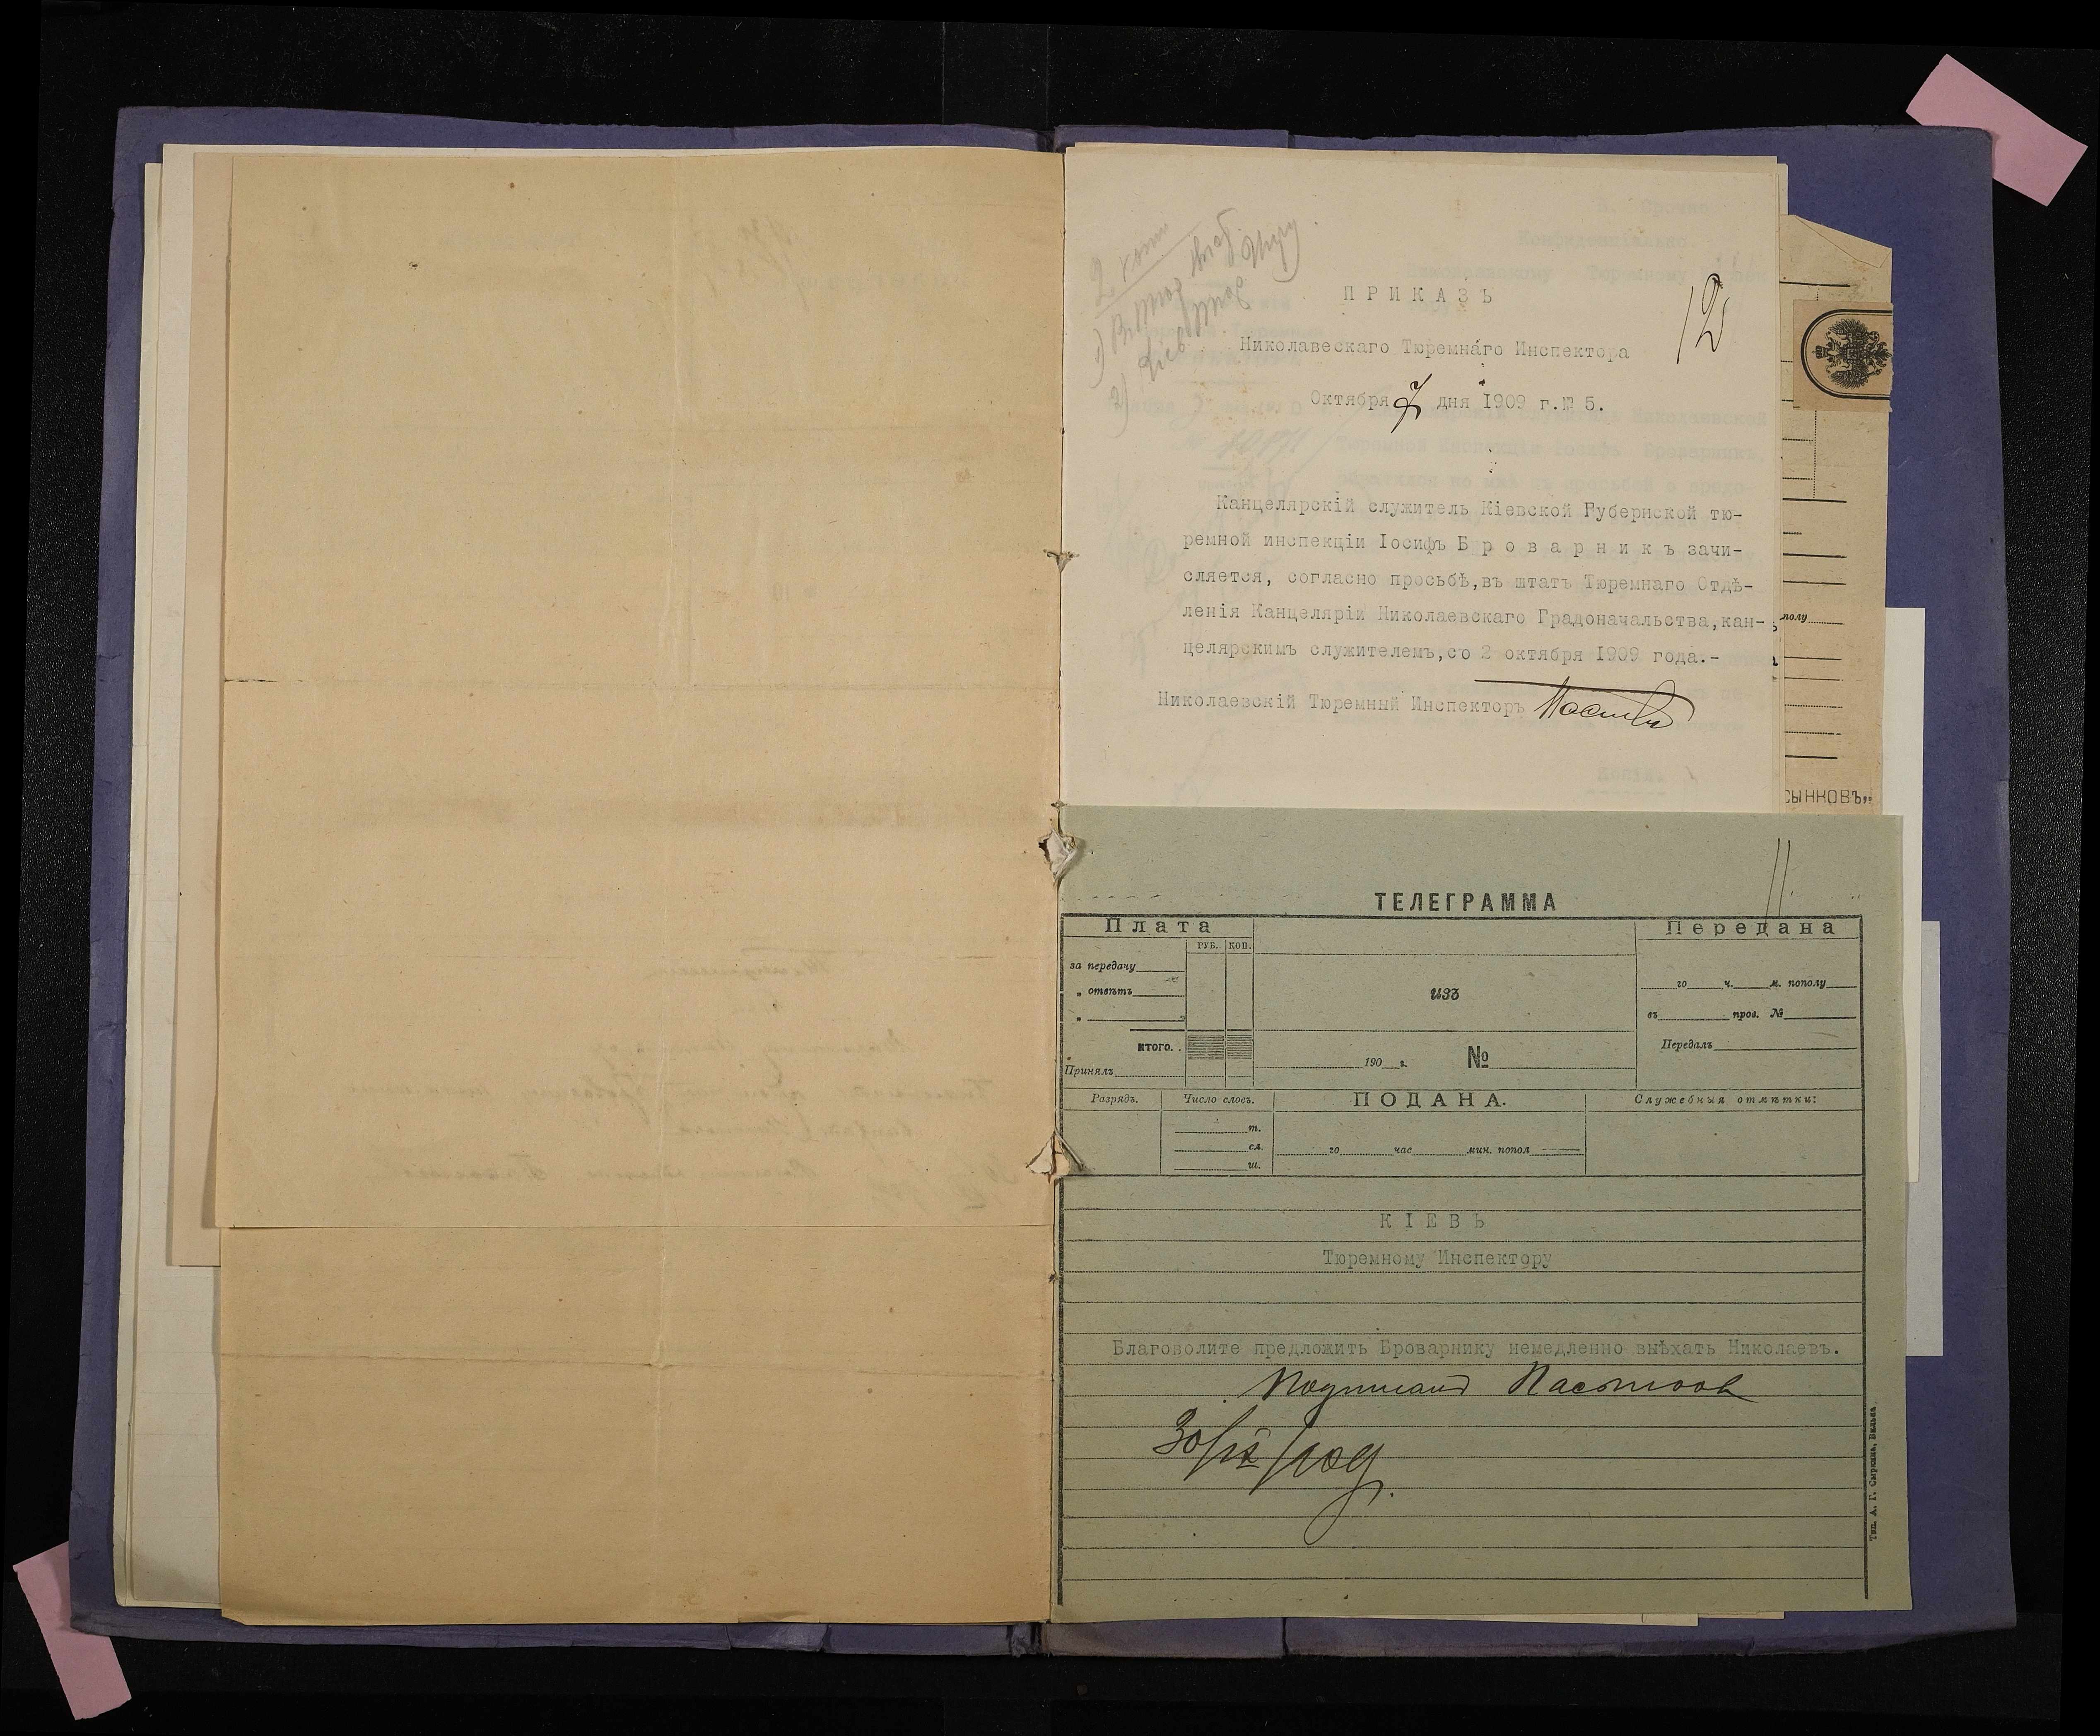 2 копіи
12
ПРИКАЗЪ
Николавескаго Тюремнаго Инспектора
Октября 7 дня 1909 г.№ 5.
Канцелярскій служитель Кіевской Губернской тю-
ремной инспекціи Іосифъ Броварникъ зачи-
сляется, согласно просьбѣ,въ штатъ Тюремнаго Отдѣ-
ленія Канцеляріи Николаевскаго Градоначальства,кан-
целярскимъ служителемъ,со 2 октября 1909 года.-
Николаевскій Тюремный Инспекторъ
полу
СЫНКОВЪ„
11.
ТЕЛЕГРАММА
Плата
РУБ. КОП.
за передачу
„ отвѣтъ
„ „
ИТОГО. .
Принялъ
изъ
190 г. №
Передана
го ч. м. пополу
въ пров. №
Передалъ
Разрядъ.
Число словъ.
т.
сл.
ш.
ПОДАНА.
го час мин. попол
Служебныя отмѣтки:
КІЕВЪ
Тюремному Инспектору
Благоволите предложить Броварнику немедленно выѣхать Николаевъ.
Подписалъ
30/IX 1909.
Тип. А. Г. Сыркина, Вильна